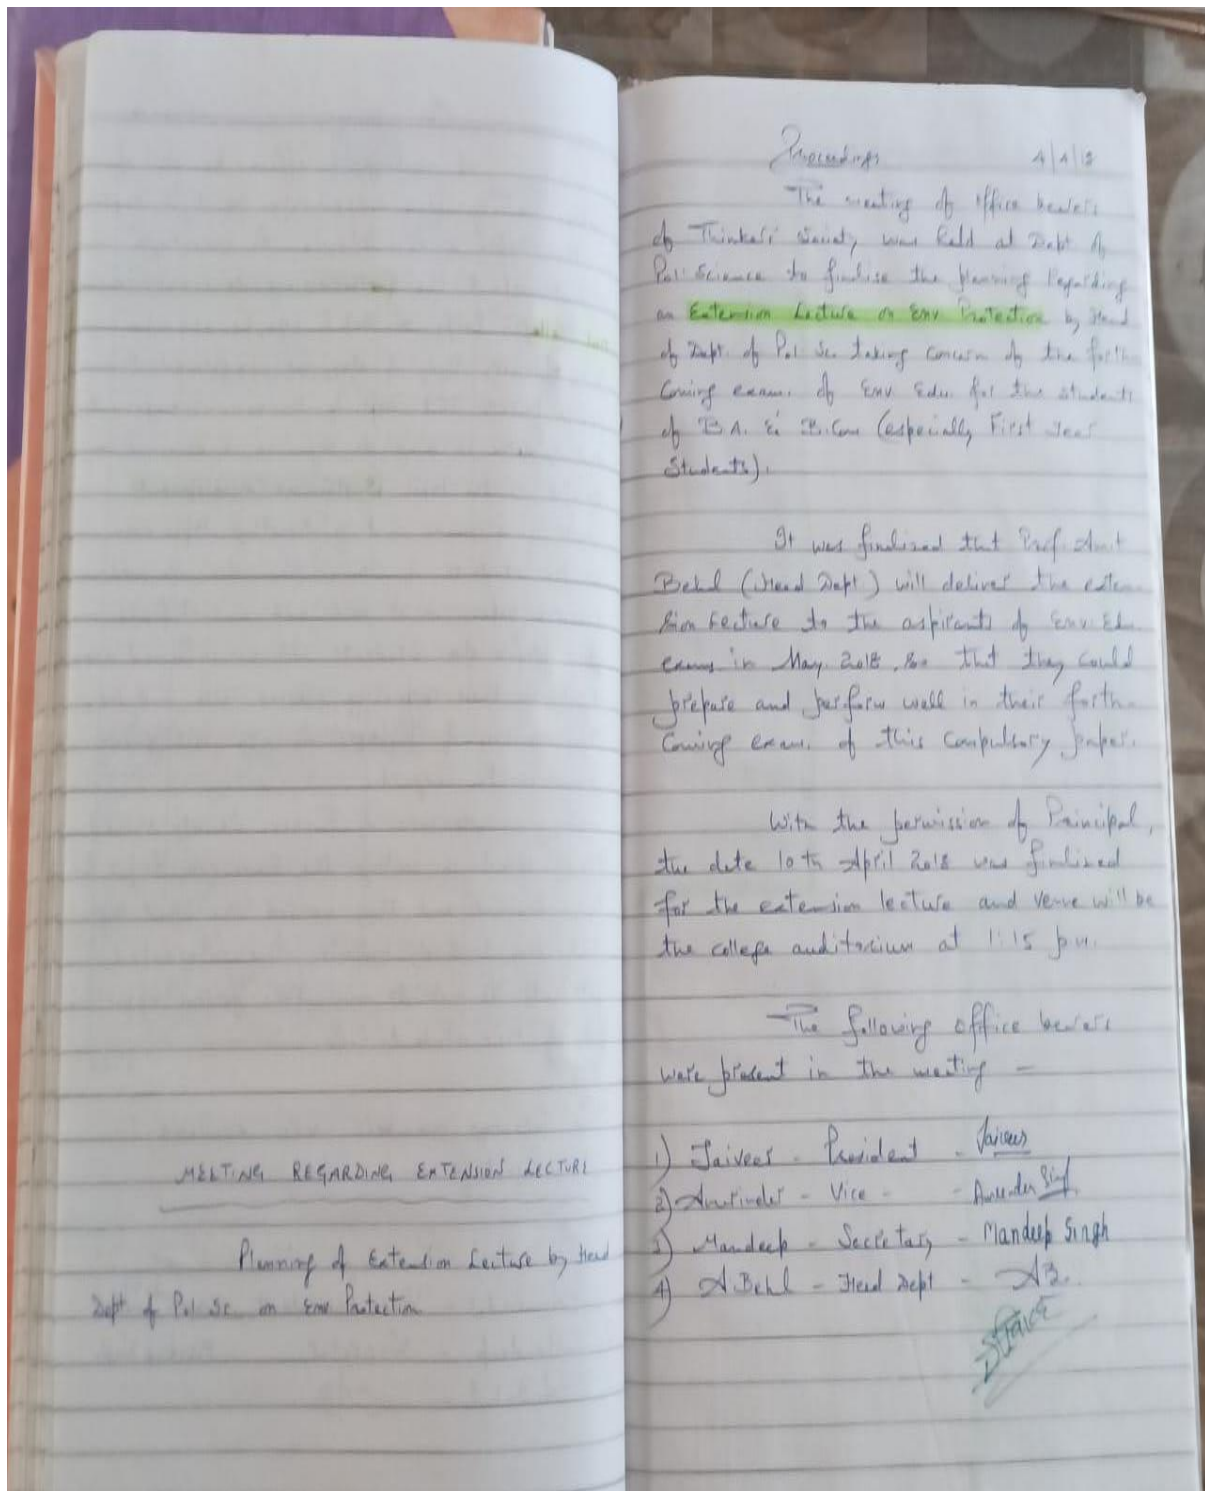 MEETING REGARDING EXTENSION LECTURE
Planning of Extension Lecture by Head
Dept of Pol Sc. on Env Protection
Proceedings 4/4/18
The meeting of office bearers
of Thinkers' Society was held at Dept of
Pol. Science to finalise the planning regarding
an Extension Lecture on Env Protection by Head
of Dept. of Pol. Sc. taking concern of the forth
coming exam. of Env Edu. for the students
of B.A. & B.Com (especially First Year
Students).
It was finalised that Prof. Amit
Behl (Head Dept) will deliver the exten-
sion lecture to the aspirants of Env. Ed.
exams in May 2018, so that they could
prepare and perform well in their forth-
coming exam. of this compulsory paper.
With the permission of Principal,
the date 10th April 2018 was finalised
for the extension lecture and venue will be
the college auditorium at 1:15 p.m.
The following office bearers
were present in the meeting —
1) Jaiveer - President - Jaiveer
2) Amrinder - Vice - - Amrinder Singh
3) Mandeep - Secretary - Mandeep Singh
4) A. Behl - Head Dept - AB.